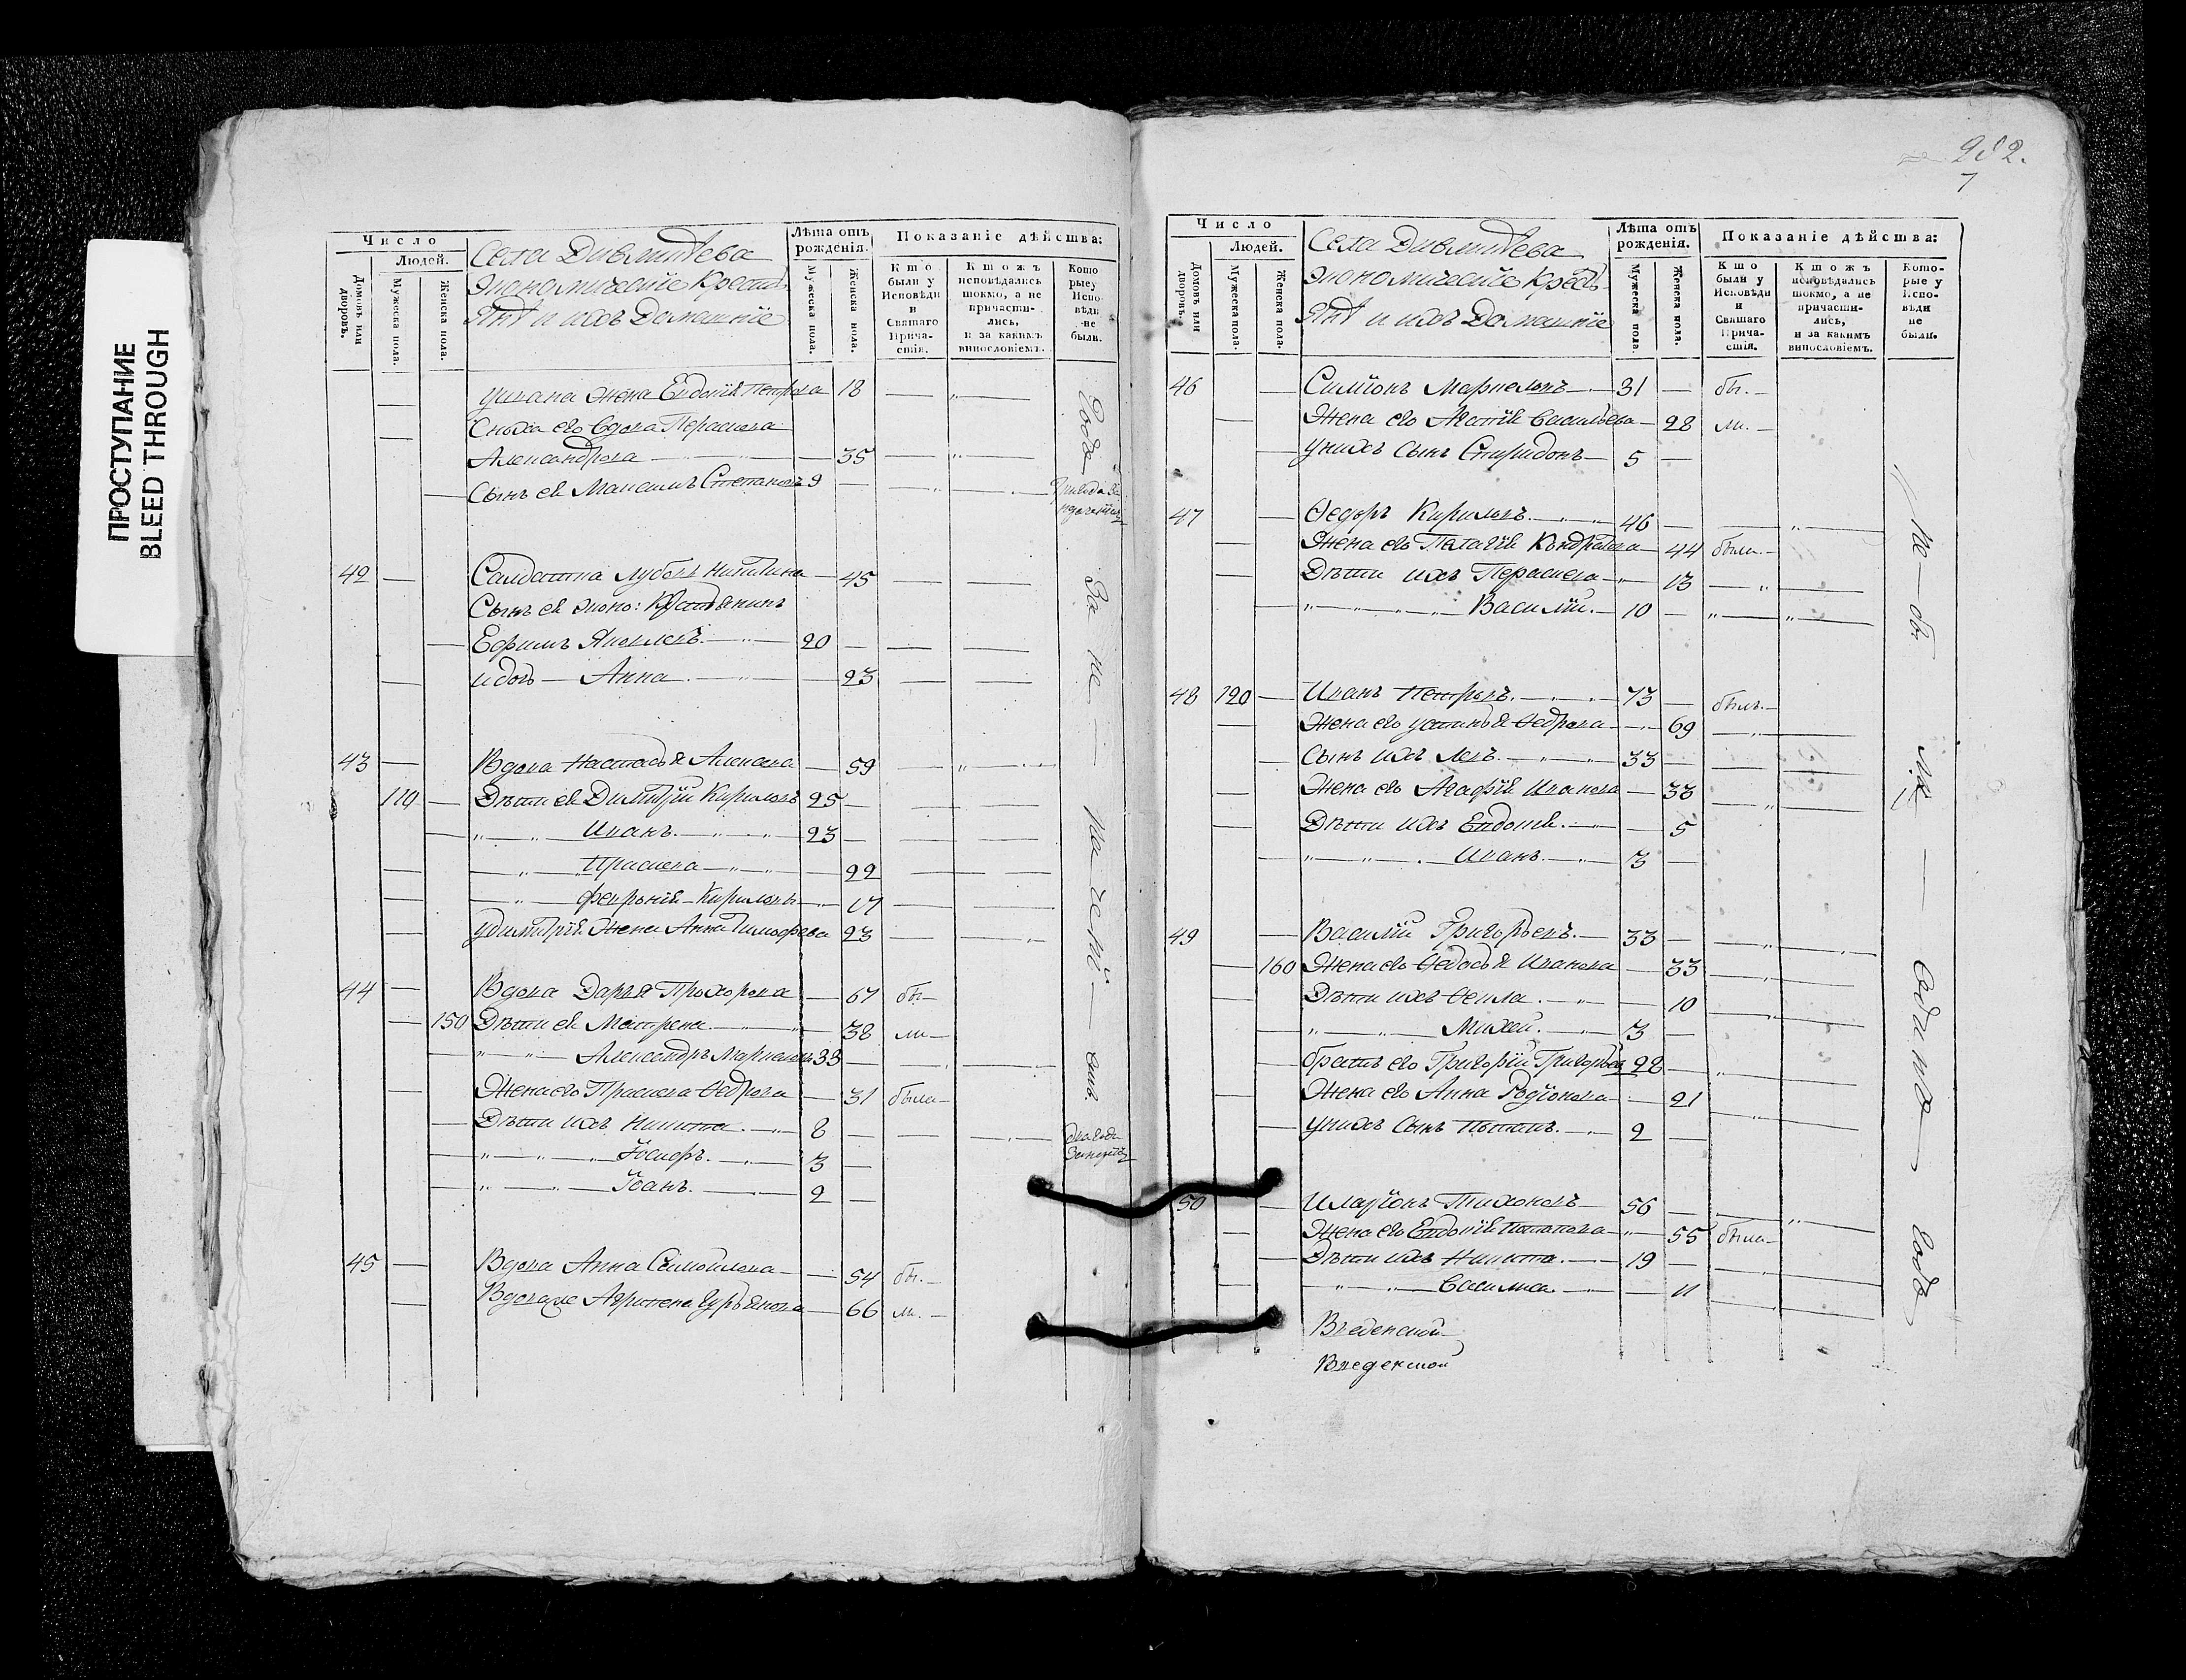 ПРОСТУПАНИЕ
BLEED THROUGH
Число
Людей.
Домовъ или дворовъ.
Мужеска пола.
Женска пола.
Села Давлитѣева
Экономическіе Крестьянѣ и ихъ Домашніе
Лѣта отъ рожденія.
Мужеска пола.
Женска пола.
Показаніе дѣйства:
Кто были у Исповѣди и Святаго Причастія.
Ктожъ исповѣдались токмо, а не причастились, и за какимъ винословіемъ.
Которые у Исповѣди не были.
Уивана Жена Евдокія Петрова 18
Сноха его Вдова Параскева
Александрова 35
Сынъ ея Максимъ Степановъ 9
42 Салдатка Любовь Никитина 45
Сынъ ея эконо: Крестьянинъ
Ефимъ Яковлевъ 20
и дочь Анна 23
43 Вдова Настасья Алексѣева 59
110 Дѣти ея Димитрій Кириловъ 25
Иванъ 23
Праскева 22
Февронія Кириловы 17
Удимитрія Жена Анна Тимофеева 23
44 Вдова Дарья Прохорова 67 бы
150 Дѣти ея Матрена 38 ли
Александръ Маркеловъ 33
Жена его Праскева Ѳедорова 31 была
Дѣти ихъ Никита 8
Іосифъ 3
Іоанъ 2
45 Вдова Анна Самойлова 54 бы
Вдова же Агрипена Гурьянова 66 ли
За не
282.
7
Число
Людей.
Домовъ или дворовъ.
Мужеска пола.
Женска пола.
Села Давлитѣева
Экономическіе Крестьянѣ и ихъ Домашніе
Лѣта отъ рожденія.
Мужеска пола.
Женска пола.
Показаніе дѣйства:
Кто были у Исповѣди и Святаго Причастія.
Ктожъ исповѣдались токмо, а не причастились, и за какимъ винословіемъ.
Которые у Исповѣди не были.
46 Симіонъ Маркеловъ 31 бы
Жена его Агафія Васильева 28 ли
Унихъ Сынъ Спиридонъ 5
47 Ѳедоръ Кириловъ 46
Жена его Пелагія Кондратьева 44 была
Дѣти ихъ Параскева 13
Василій 10
48 120 Иванъ Петровъ 73 былъ
Жена его Устинья Ѳедорова 69
Сынъ ихъ Левъ 33
Жена его Агафія Иванова 33
Дѣти ихъ Евдокія 5
Иванъ 3
49 Василій Григорьевъ 33
160 Жена его Ѳедосья Иванова 33
Дѣти ихъ Ѳекла 10
Михей 3
братъ его Григорій Григорьевъ 22
Жена его Анна Родіонова 21
Унихъ Сынъ Потапъ 2
50 Иларіонъ Тихоновъ 56
Жена его Евдокія Потапова 55 была
Дѣти ихъ Никита 19
Василиса 11
Введенской
Введенской